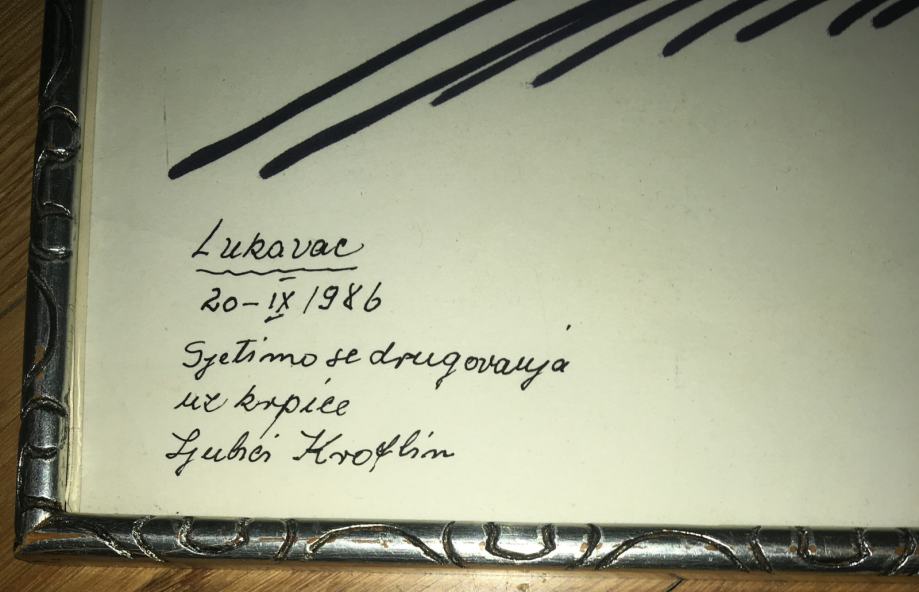 Lukavac
20-IX 1986
Sjetimo se drugovanja
uz krpice
Ljubici Kroflin